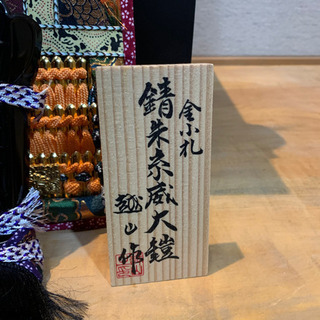 金小札
錆朱糸威大鎧
越山作